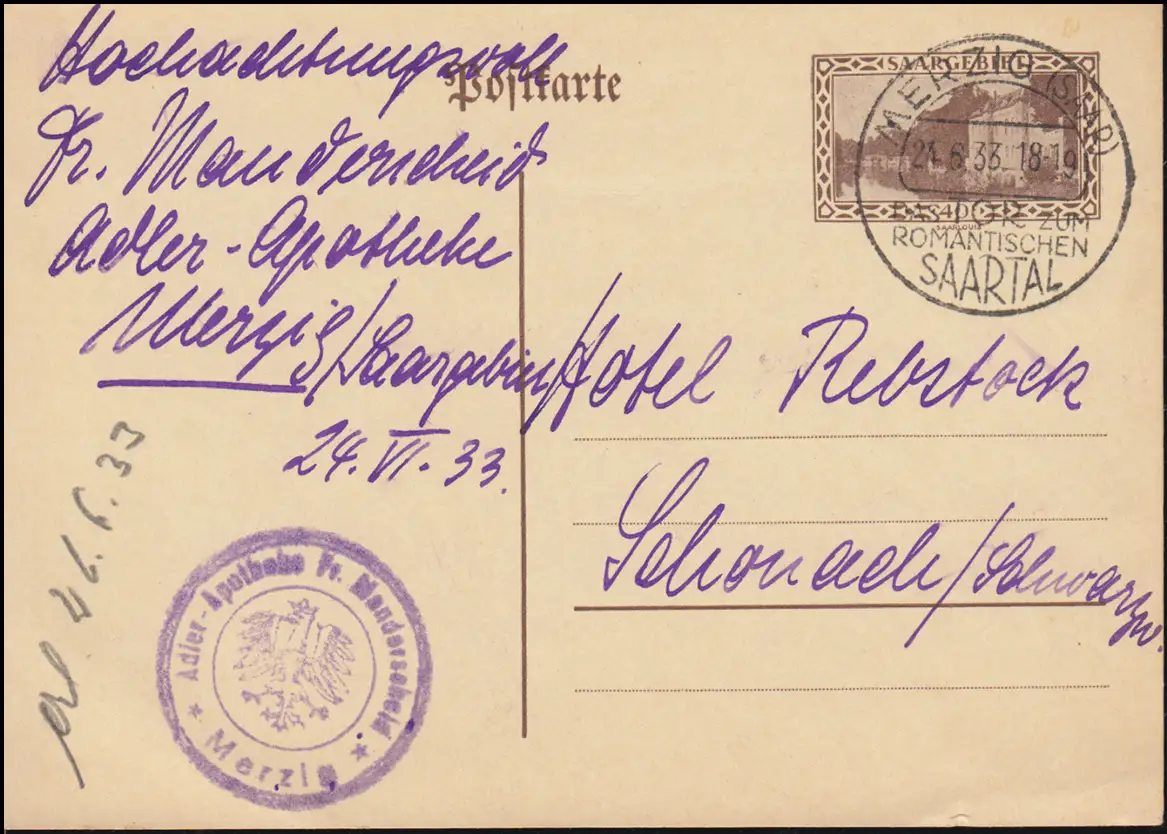 Hochachtungsvoll
Postkarte
Fr. Manderscheid
Adler-Apotheke
Merzig/Saargebiet
24. VI. 33.
SAARGEBIET
40
SAARLOUIS
MERZIG (SAAR)
24.6.33. 18-19
TOR ZUM
ROMANTISCHEN
SAARTAL
Hotel Rebstock
Schonach/Schwarzw.
26.6.33
Adler-Apotheke Fr. Manderscheid
Merzig